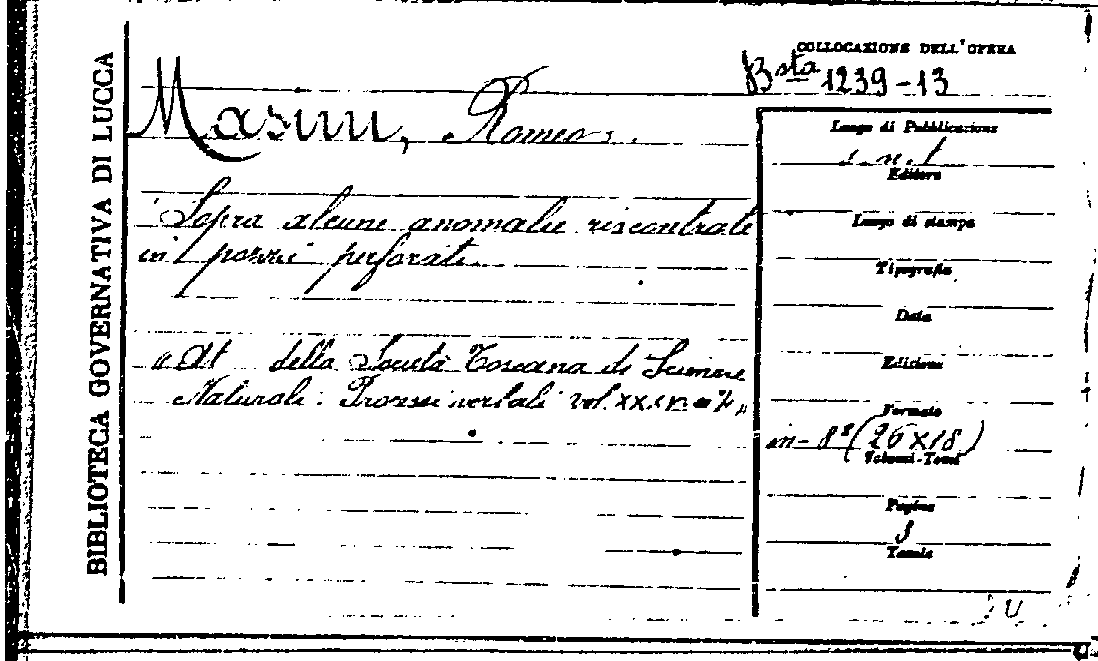 BIBLIOTECA GOVERNATIVA DI LUCCA
COLLOCAZIONE DELL'OPERA
Bsta 1239-13
Masini, Romeo.
Sopra alcune anomalie riscontrate
in pozzi perforati.
"At della Società Toscana di Scienze
Naturali. Processi verbali vol. XX
Luogo di Pubblicazione
s. n. t
Editore
Luogo di stampa
Tipografia
Data
Edizione
Formato
in-8° (26x18)
Volumi-Tomi
Pagine
8
Tavole